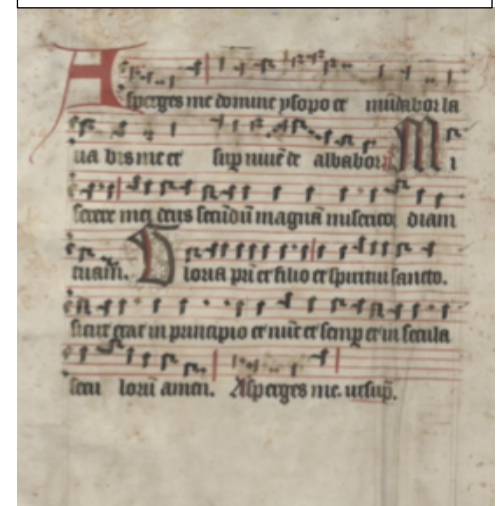 Asperges me domine ysopo et mūdabor la
ua bis me et sup niuē de albabor. Mi
serere mei deus secūdū magnā misericor diam
tuam. Gloria pri et filio et spiritui sancto.
sicut erat in principio et nūc et semp et in secula
secu lorū amen. Asperges me. ut sup̄.